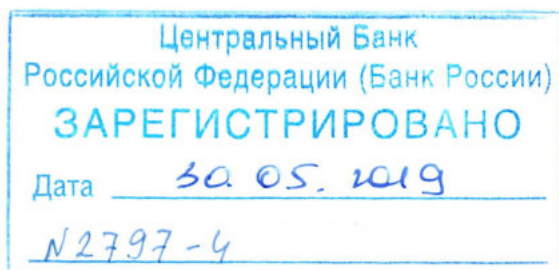 Центральный Банк
Российской Федерации (Банк России)
ЗАРЕГИСТРИРОВАНО
Дата 30.05.2019
N2797-4